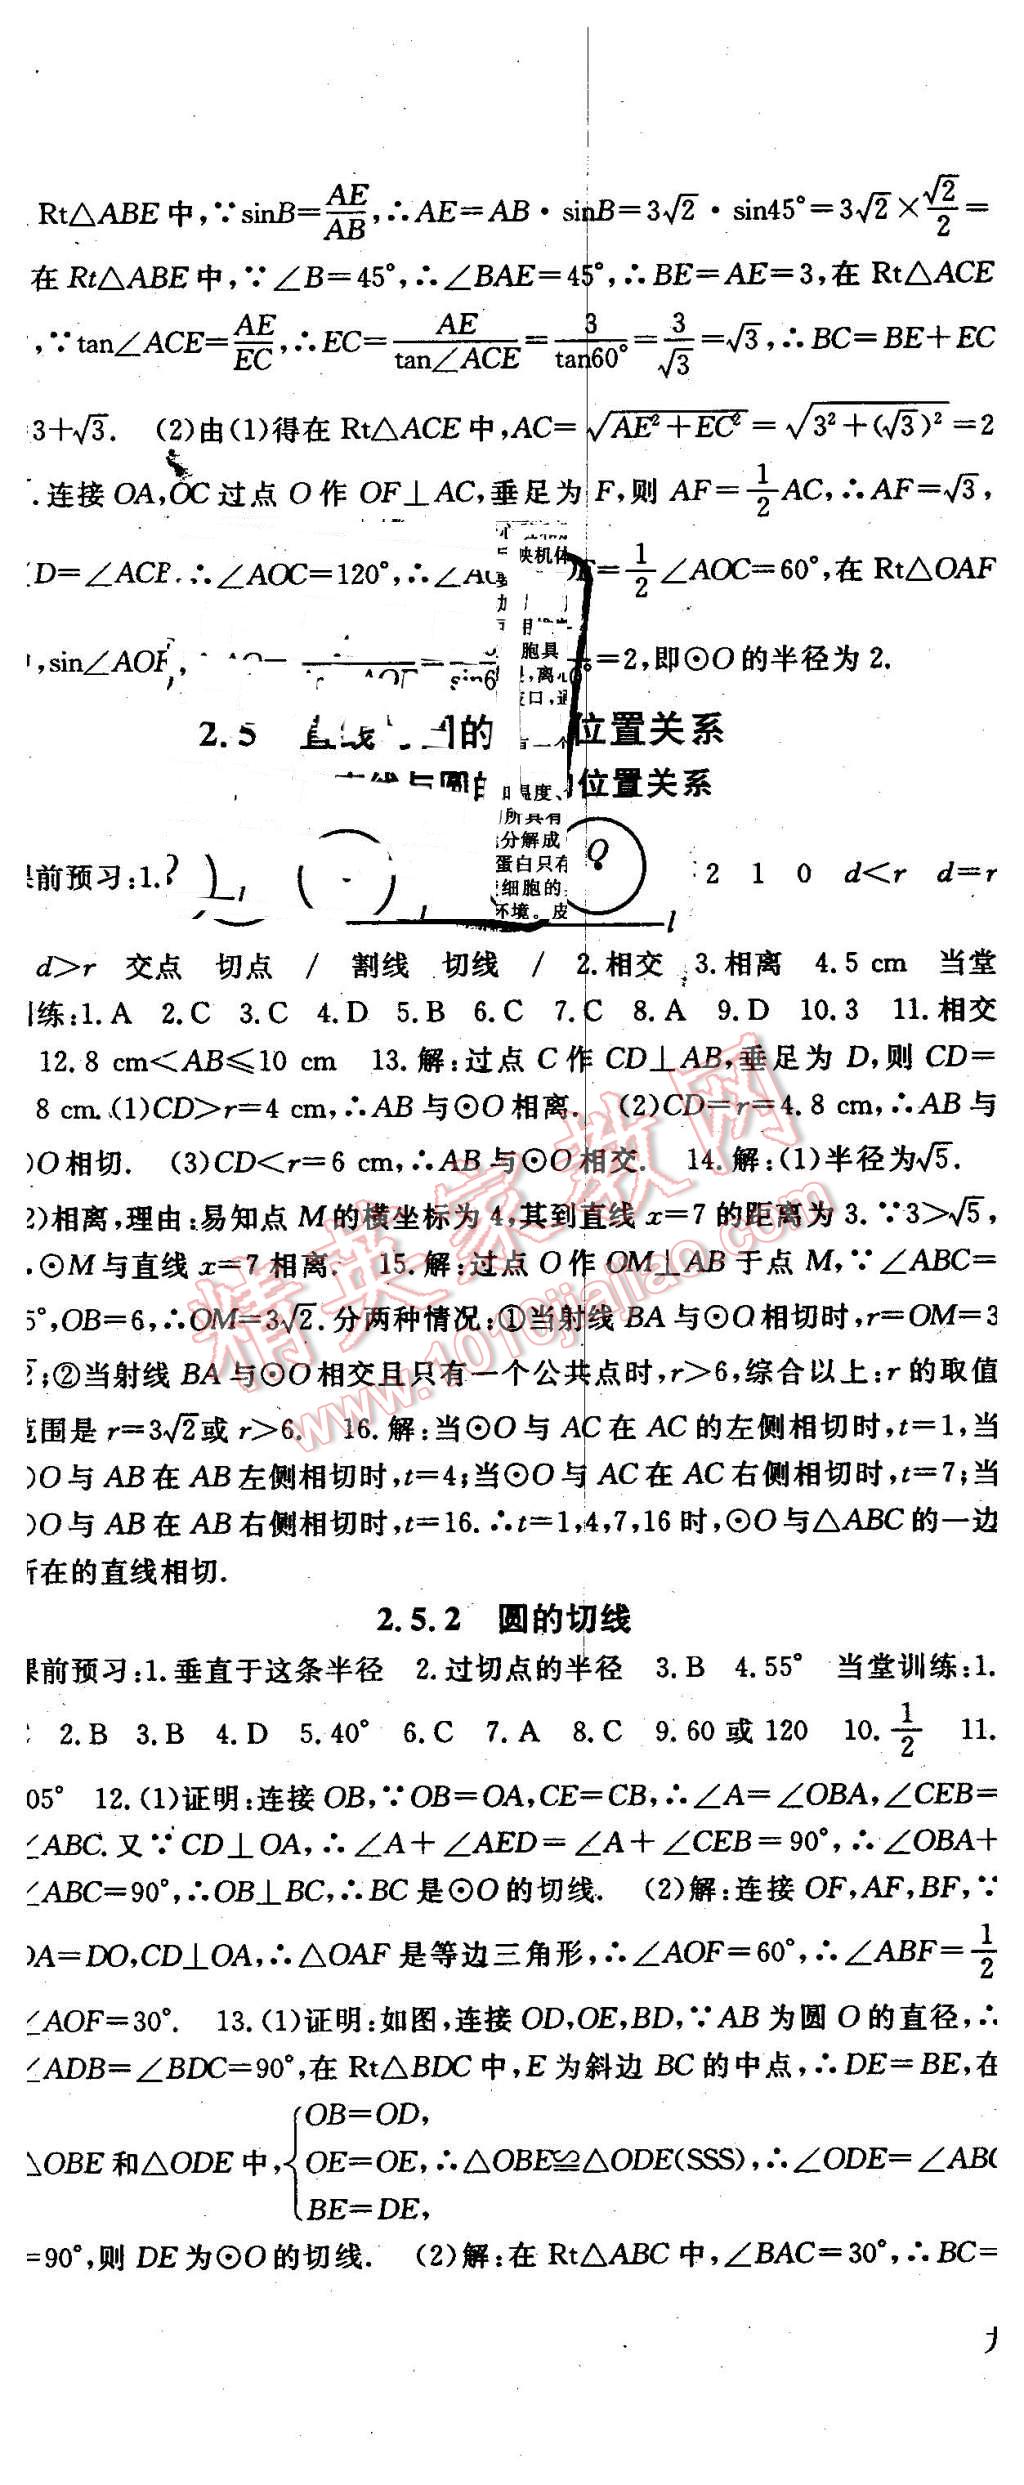 Rt△ABE中,∵sinB=AE/AB,∴AE=AB·sinB=3√2·sin45°=3√2×√2/2=
在Rt△ABE中,∵∠B=45°,∴∠BAE=45°,∴BE=AE=3,在Rt△ACE
,∵tan∠ACE=AE/EC,∴EC=AE/tan∠ACE=3/tan60°=3/√3=√3,∴BC=BE+EC
3+√3. (2)由(1)得在Rt△ACE中,AC=√(AE²+EC²)=√(3²+(√3)²)=2
.连接OA,OC过点O作OF⊥AC,垂足为F,则AF=1/2AC,∴AF=√3,
D=∠ACE,∴∠AOC=120°,∴∠AO =1/2∠AOC=60°,在Rt△OAF
,sin∠AOF =2,即⊙O的半径为2.
2.5 直线 的 位置关系
位置关系
映机体
胞具
,离心
温度、
所具有
分解成
蛋白只有
细胞的
环境。皮
前预习:1. l O l 2 1 0 d<r d=r
d>r 交点 切点 / 割线 切线 / 2.相交 3.相离 4.5 cm 当堂
练:1.A 2.C 3.C 4.D 5.B 6.C 7.C 8.A 9.D 10.3 11.相交
12.8 cm<AB≤10 cm 13.解:过点C作CD⊥AB,垂足为D,则CD=
8 cm.(1)CD>r=4 cm,∴AB与⊙O相离. (2)CD=r=4.8 cm,∴AB与
O相切. (3)CD<r=6 cm,∴AB与⊙O相交. 14.解:(1)半径为√5.
2)相离,理由:易知点M的横坐标为4,其到直线x=7的距离为3.∵3>√5,
.⊙M与直线x=7相离. 15.解:过点O作OM⊥AB于点M,∵∠ABC=
5°,OB=6,∴OM=3√2.分两种情况:①当射线BA与⊙O相切时,r=OM=3
;②当射线BA与⊙O相交且只有一个公共点时,r>6,综合以上:r的取值
范围是r=3√2或r>6. 16.解:当⊙O与AC在AC的左侧相切时,t=1,当
O与AB在AB左侧相切时,t=4;当⊙O与AC在AC右侧相切时,t=7;当
O与AB在AB右侧相切时,t=16.∴t=1,4,7,16时,⊙O与△ABC的一边
所在的直线相切.
2.5.2 圆的切线
课前预习:1.垂直于这条半径 2.过切点的半径 3.B 4.55° 当堂训练:1.
2.B 3.B 4.D 5.40° 6.C 7.A 8.C 9.60或120 10.1/2 11.
05° 12.(1)证明:连接OB,∵OB=OA,CE=CB,∴∠A=∠OBA,∠CEB=
∠ABC.又∵CD⊥OA,∴∠A+∠AED=∠A+∠CEB=90°,∴∠OBA+
∠ABC=90°,∴OB⊥BC,∴BC是⊙O的切线. (2)解:连接OF,AF,BF,∵
DA=DO,CD⊥OA,∴△OAF是等边三角形,∴∠AOF=60°,∴∠ABF=1/2
∠AOF=30°. 13.(1)证明:如图,连接OD,OE,BD,∵AB为圆O的直径,∴
∠ADB=∠BDC=90°,在Rt△BDC中,E为斜边BC的中点,∴DE=BE,在
△OBE和△ODE中,{OB=OD, OE=OE, BE=DE, ∴△OBE≌△ODE(SSS),∴∠ODE=∠ABC
=90°,则DE为⊙O的切线. (2)解:在Rt△ABC中,∠BAC=30°,∴BC=
精英家教网
www.1010jiajiao.com